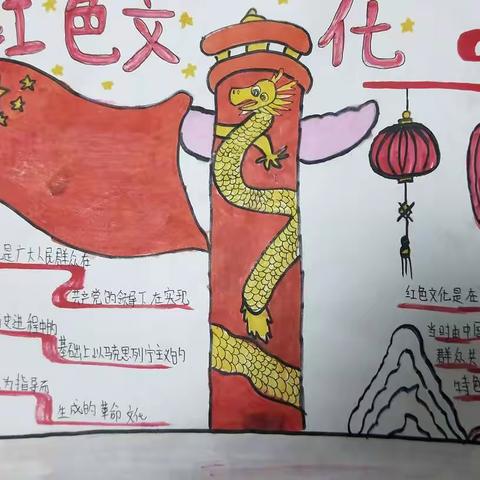 红色文化
是广大人民群众在
共产党的领导下在实现
史进程中的
基础上以马克思列宁主义的
为指导而
生成的革命文化
红色文化是在
当时由中国
群众共
特色